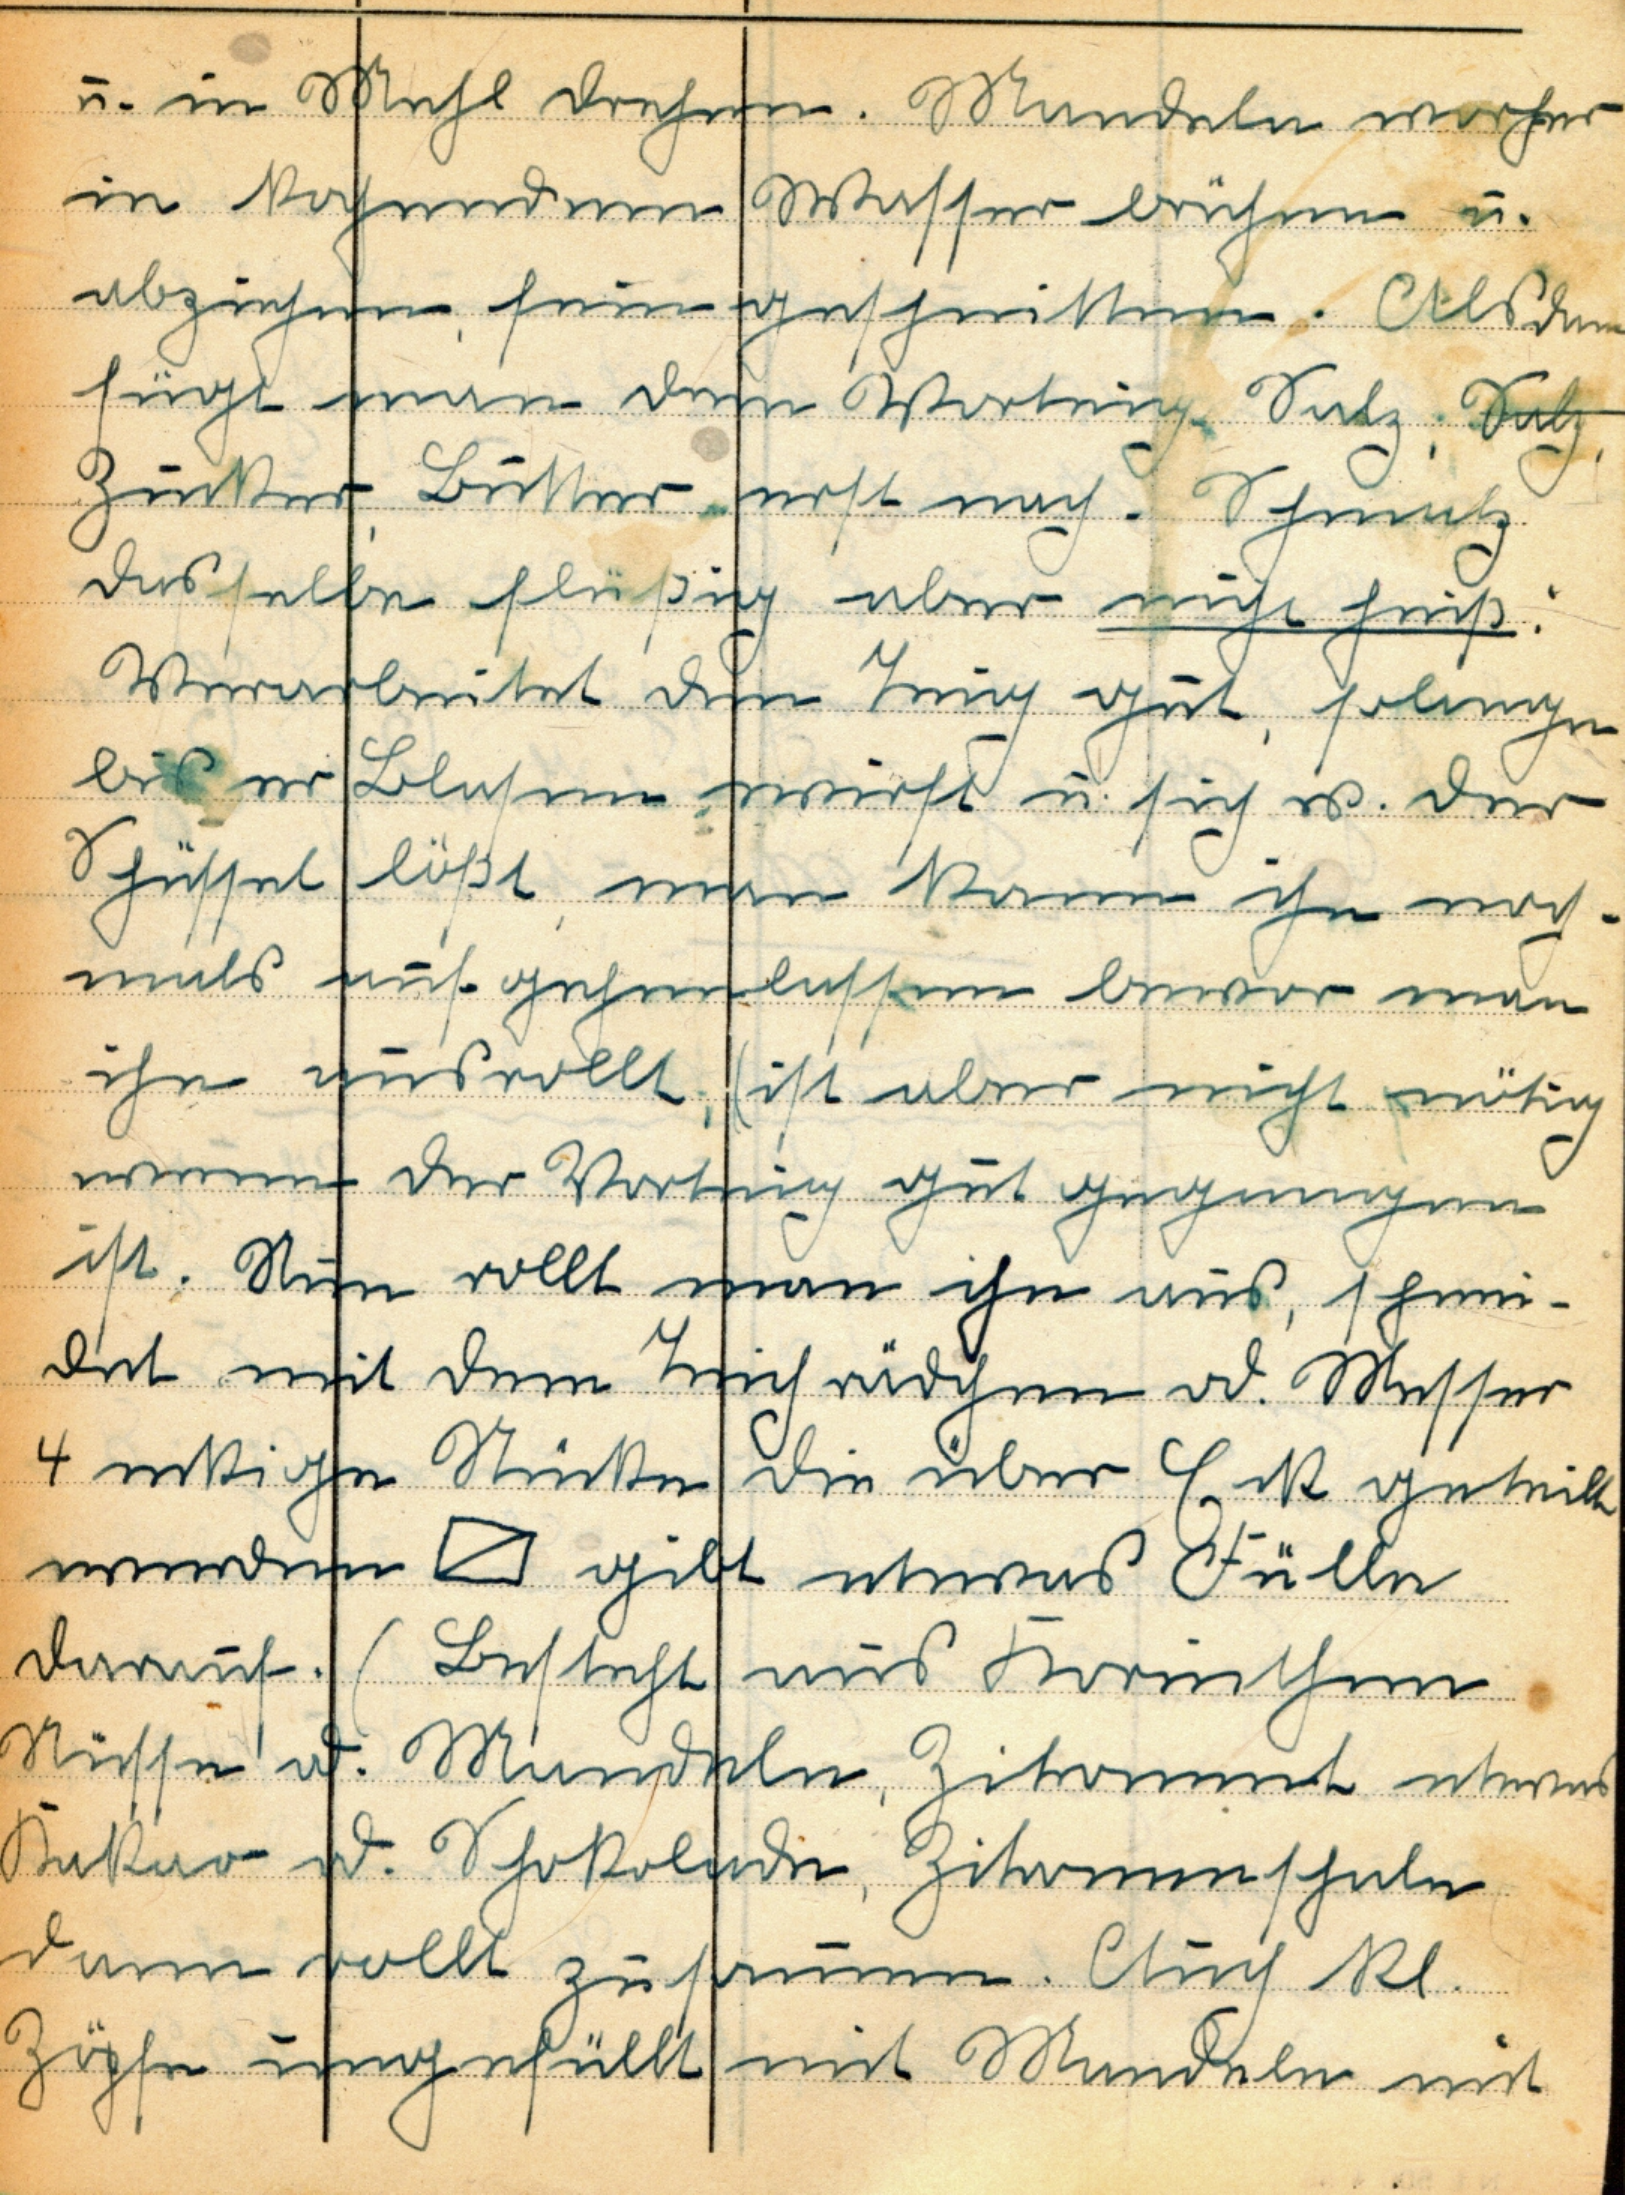 u. in Mehl drehen. Mandeln vorher
in kochendem Wasser brühen u.
abziehen, fein geschnitten. Alsdann
fügt man dem Vorteig Salz, Salz,
Zucker, Butter erst nach. Schmalz
dasselbe flüßig aber nicht heiß.
Verarbeitet den Teig gut, solange
bis er Blasen wirft u. sich v. der
Schüssel lößt, man kann ihn noch-
mals auf gehen lassen bevor man
ihn ausrollt, (ist aber nicht nötig
wenn der Vorteig gut gegangen
ist. Nun rollt man ihn aus, schnei-
det mit dem Teichrädchen od. Messer
4 eckige Stücke die über Eck geteilt
werden gibt etwas Fülle
darauf. (Besteht aus Korinthen
Nüsse od. Mandeln, Zitronnat etwas
Kakao od. Schokolade, Zitronenschale
dann rollt zusammen. Auch kl.
Zöpfe ungefüllt mit Mandeln mit